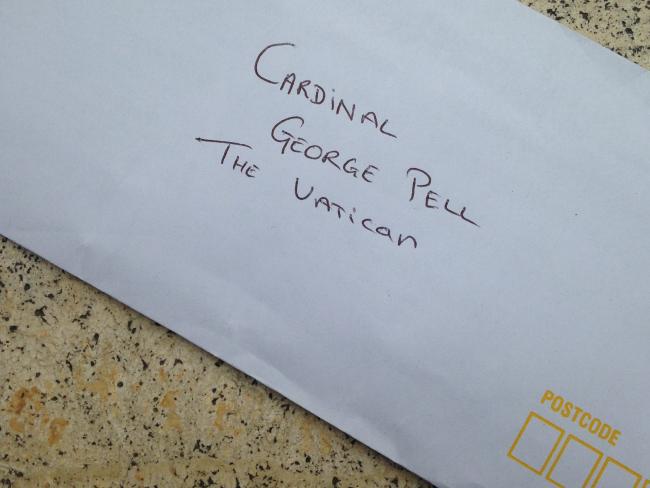 CARDiNAL
GEORGE PELL
THE VATiCan
POSTCODE